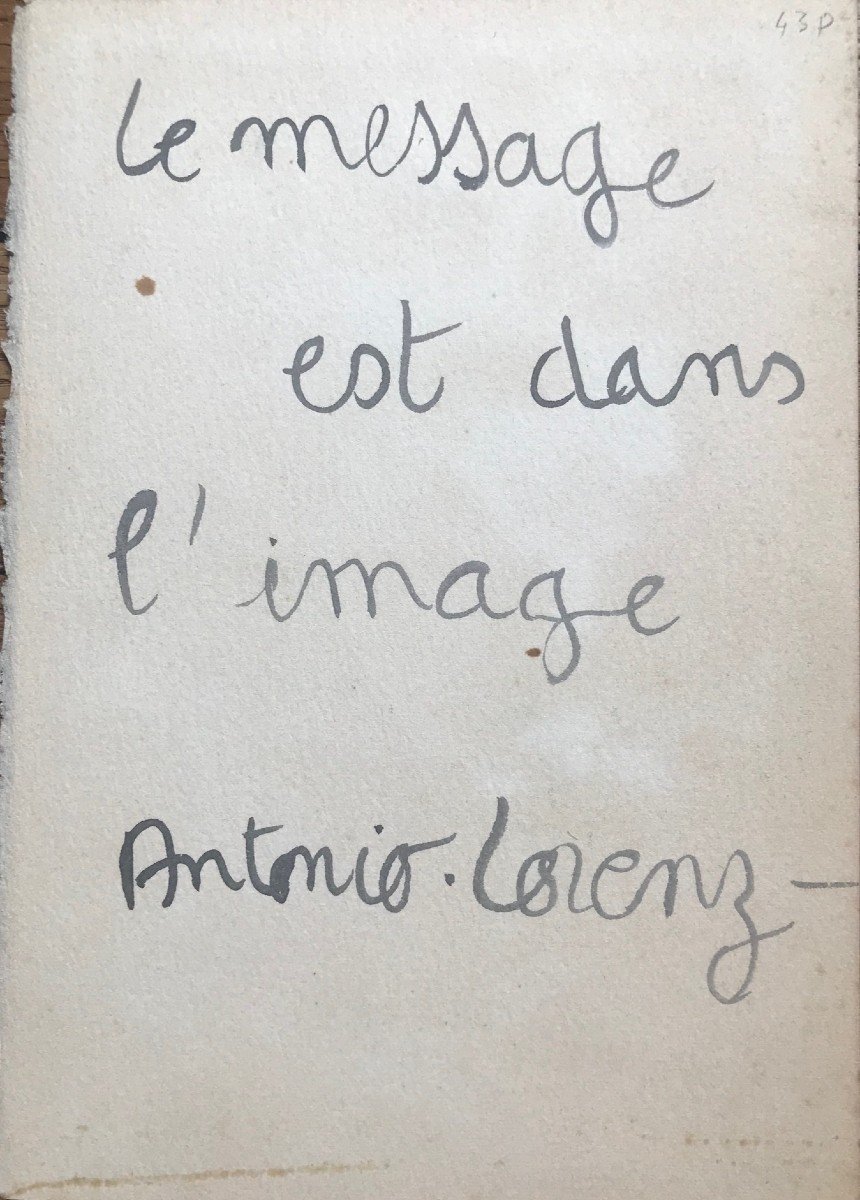 43P
Le message
est dans
l'image
Antonio. Lorenz -